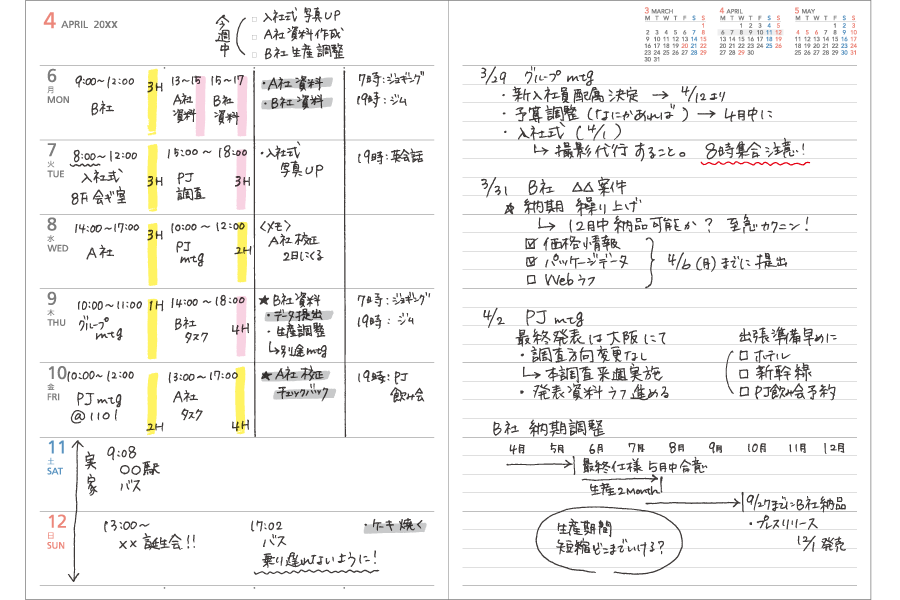 4 APRIL 20XX
今週中
□ 入社式 写真UP
□ A社 資料作成
□ B社 生産調整
6
月
MON
9:00〜12:00
B社
3H
13〜15
A社
資料
15〜17
B社
資料
・A社資料
・B社資料
7時:ジョギング
19時:ジム
7
火
TUE
8:00〜12:00
入社式
8F 会ギ室
3H
15:00〜18:00
PJ
調査
3H
・入社式
写真UP
19時:英会話
8
水
WED
14:00〜17:00
A社
3H
10:00〜12:00
PJ
mtg
2H
<メモ>
A社校正
2日にくる
9
木
THU
10:00〜11:00
グループ
mtg
1H
14:00〜18:00
B社
タスク
4H
★B社資料
・データ提出
・生産調整
↳別途mtg
7時:ジョギング
19時:ジム
10
金
FRI
10:00〜12:00
PJ mtg
@1101
2H
13:00〜17:00
A社
タスク
4H
★A社校正
チェックバック
19時:PJ
飲み会
11
土
SAT
実家
9:08
○○駅
バス
12
日
SUN
13:00〜
×× 誕生会!!
17:02
バス
乗り遅れないように!
・ケーキ焼く
3 MARCH
M T W T F S S
1
2 3 4 5 6 7 8
9 10 11 12 13 14 15
16 17 18 19 20 21 22
23 24 25 26 27 28 29
30 31
4 APRIL
M T W T F S S
1 2 3 4 5
6 7 8 9 10 11 12
13 14 15 16 17 18 19
20 21 22 23 24 25 26
27 28 29 30
5 MAY
M T W T F S S
1 2 3
4 5 6 7 8 9 10
11 12 13 14 15 16 17
18 19 20 21 22 23 24
25 26 27 28 29 30 31
3/29 グループmtg
・新入社員配属決定 → 4/12より
・予算調整(なにかあれば) → 4月中に
・入社式(4/1)
↳ 撮影代行すること。 8時集合注意!
3/31 B社 △△案件
★納期 繰り上げ
↳ 12月中納品可能か? 至急カクニン!
☑ 価格情報
☑ パッケージデータ
□ Webラフ
4/6(月)までに提出
4/2 PJ mtg
最終発表は大阪にて
・調査方向変更なし
↳ 本調査来週実施
・発表資料ラフ進める
出張準備早めに
□ ホテル
□ 新幹線
□ PJ飲み会予約
B社 納期調整
4月 5月 6月 7月 8月 9月 10月 11月 12月
最終仕様 5月中合意
生産2Month
9/27までにB社納品
・プレスリリース
12/1 発売
生産期間
短縮どこまでいける?